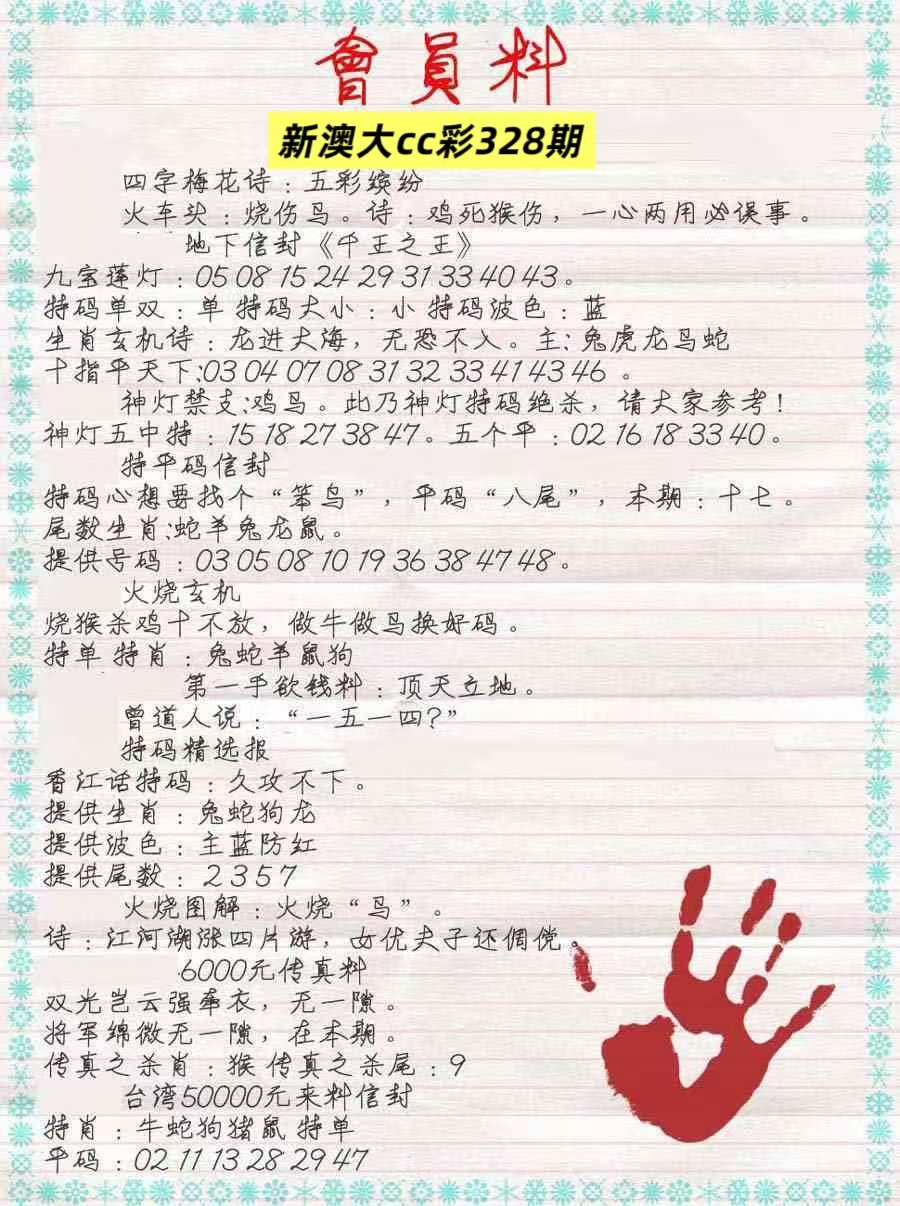 會員料
新澳大cc彩328期
四字梅花诗：五彩缤纷
火车头：烧伤鸟。诗：鸡死猴伤，一心两用必误事。
地下信封《千王之王》
九宝莲灯：05 08 15 24 29 31 33 40 43。
特码单双：单 特码大小：小 特码波色：蓝
生肖玄机诗：龙进大海，无恐不入。主：兔虎龙鸟蛇
十指平天下:03 04 07 08 31 32 33 41 43 46 。
神灯禁支:鸡鸟。此乃神灯特码绝杀，请大家参考！
神灯五中特：15 18 27 38 47。五个平：02 16 18 33 40。
特平码信封
特码心想要找个“笨鸟”，平码“八尾”，本期：十七。
尾数生肖:蛇羊兔龙鼠。
提供号码：03 05 08 10 19 36 38 47 48。
火烧玄机
烧猴杀鸡十不放，做牛做鸟换好码。
特单 特肖：兔蛇羊鼠狗
第一手欲钱料：顶天立地。
曾道人说：“一五一四？”
特码精选报
香江话特码：久攻不下。
提供生肖：兔蛇狗龙
提供波色：主蓝防红
提供尾数：2 3 5 7
火烧图解：火烧“鸟”。
诗：江河湖涨四片游，女优夫子还倜傥。
6000元传真料
双光岂云强牵衣，无一隙。
将军绵微无一隙，在本期。
传真之杀肖：猴 传真之杀尾：9
台湾50000元来料信封
特肖：牛蛇狗猪鼠 特单
平码：02 11 13 28 29 47